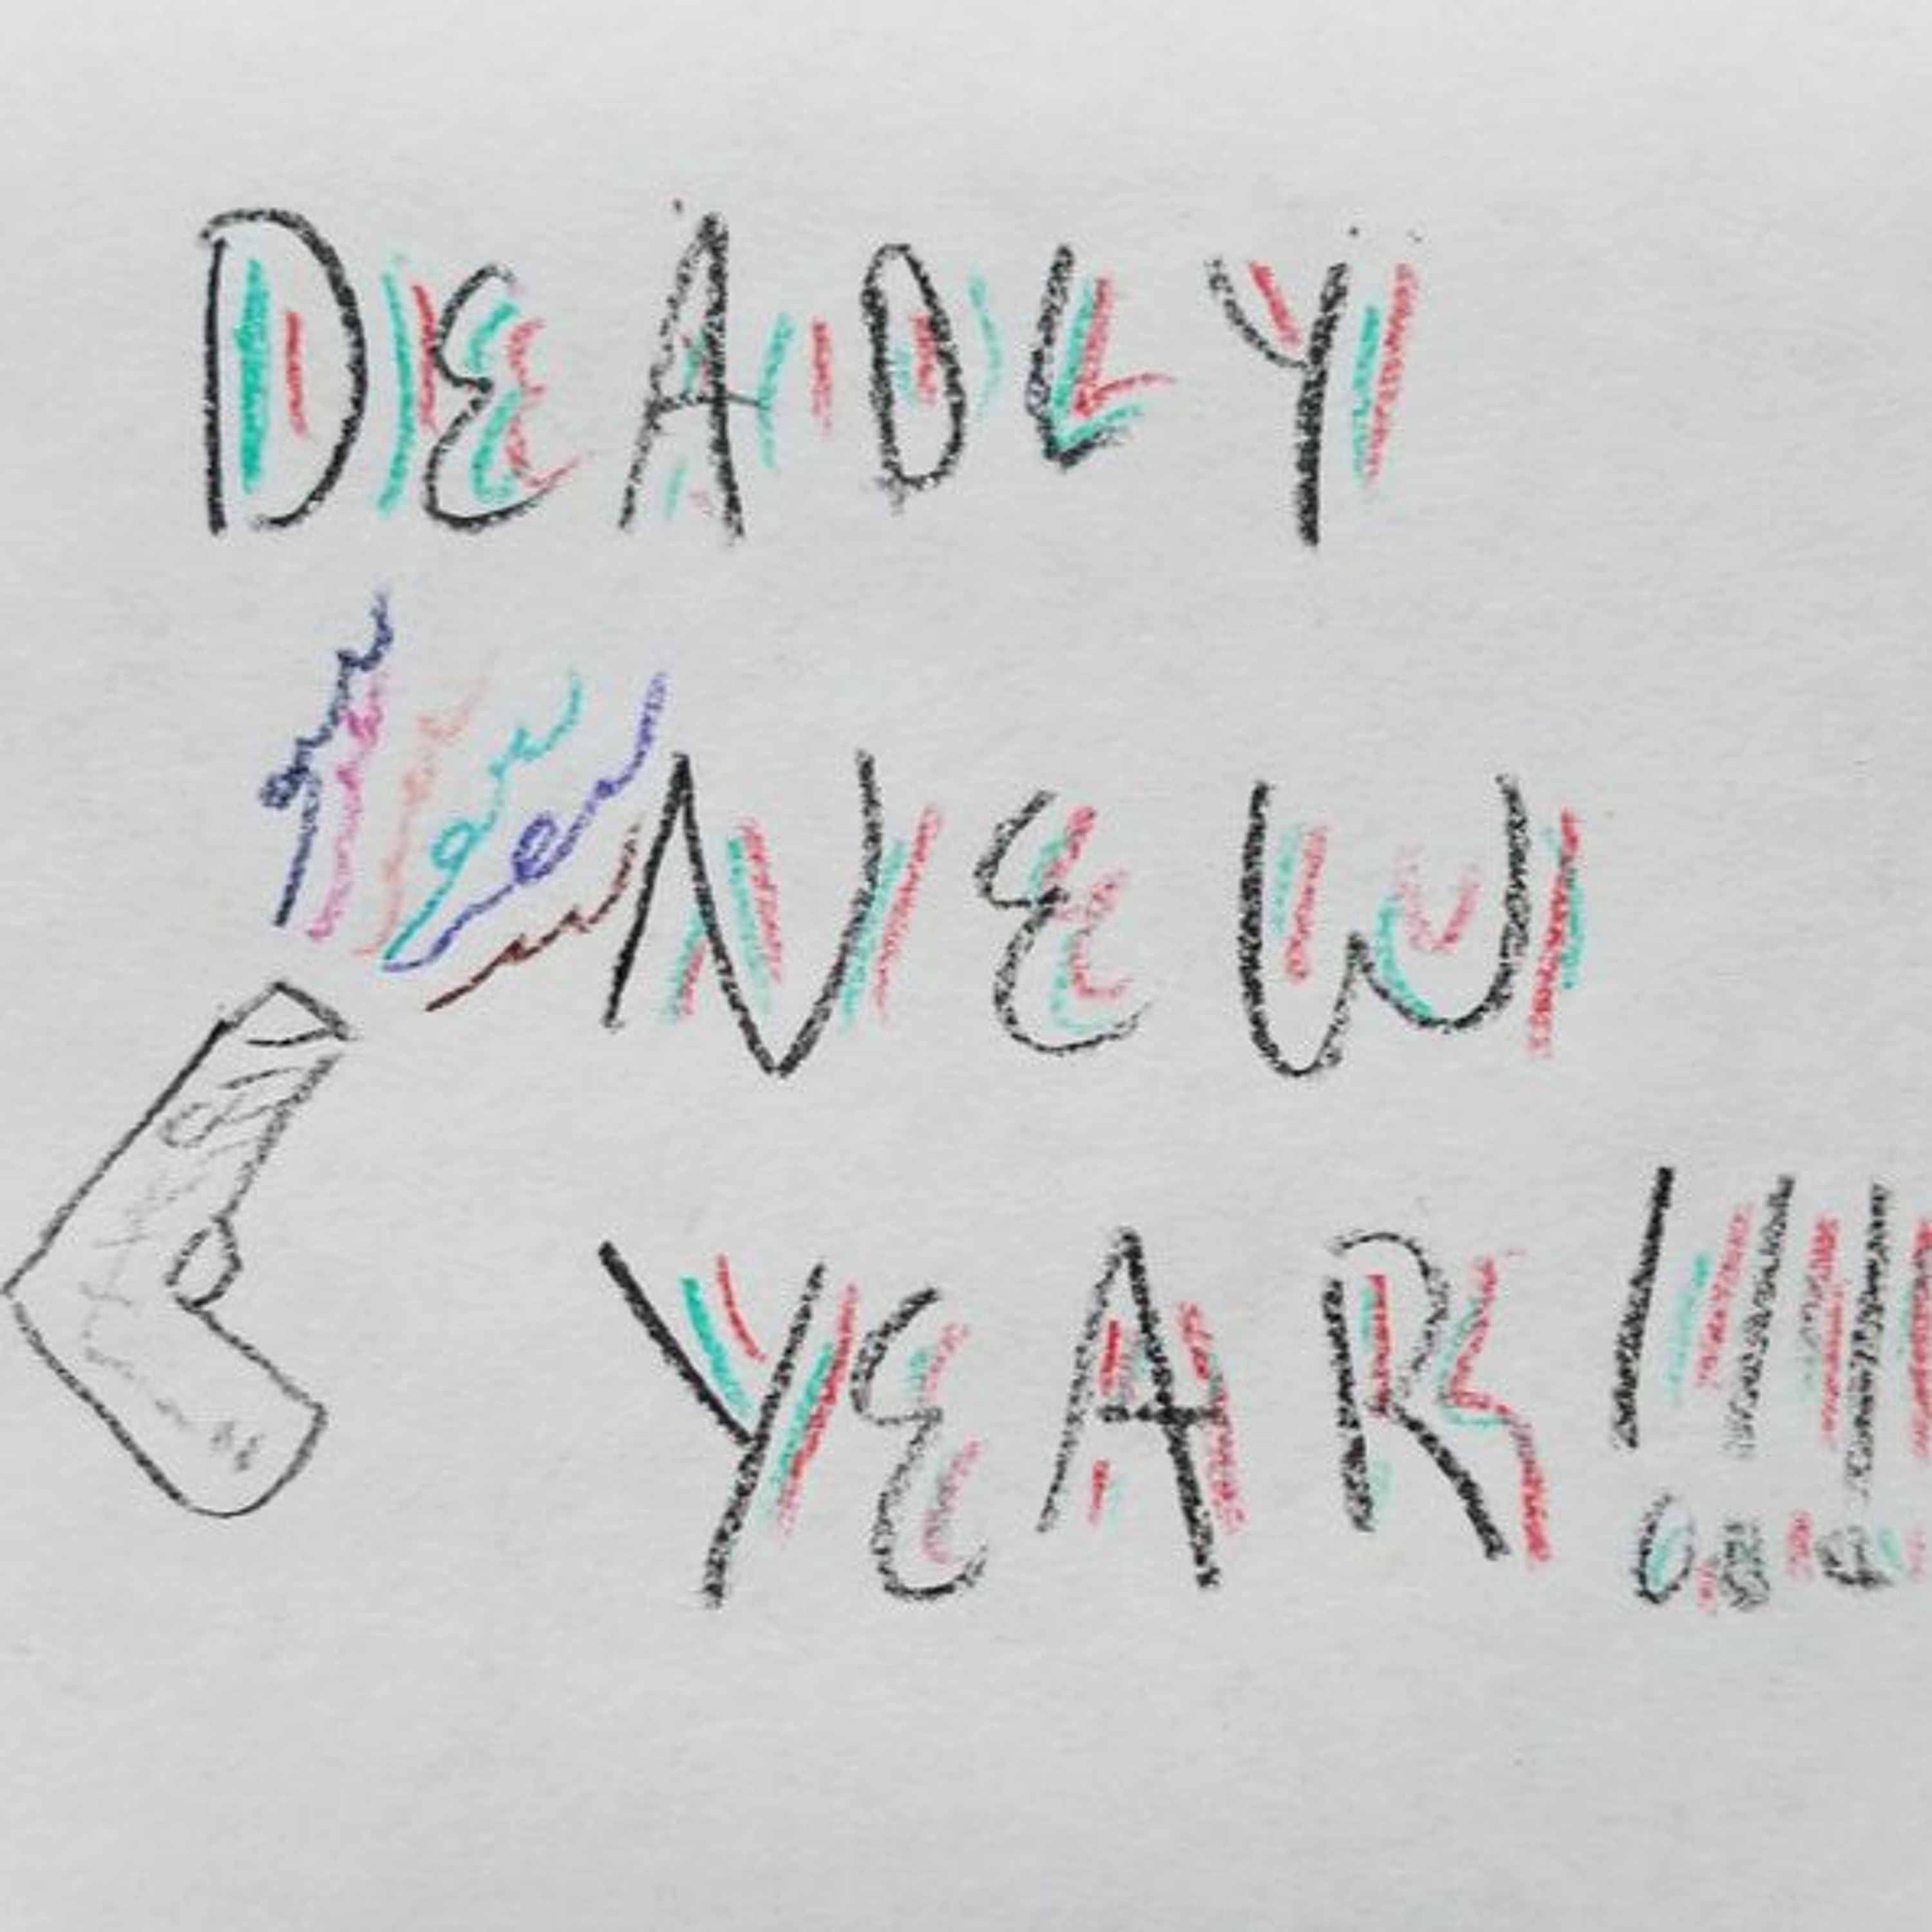 DEADLY
NEW
YEAR!!!